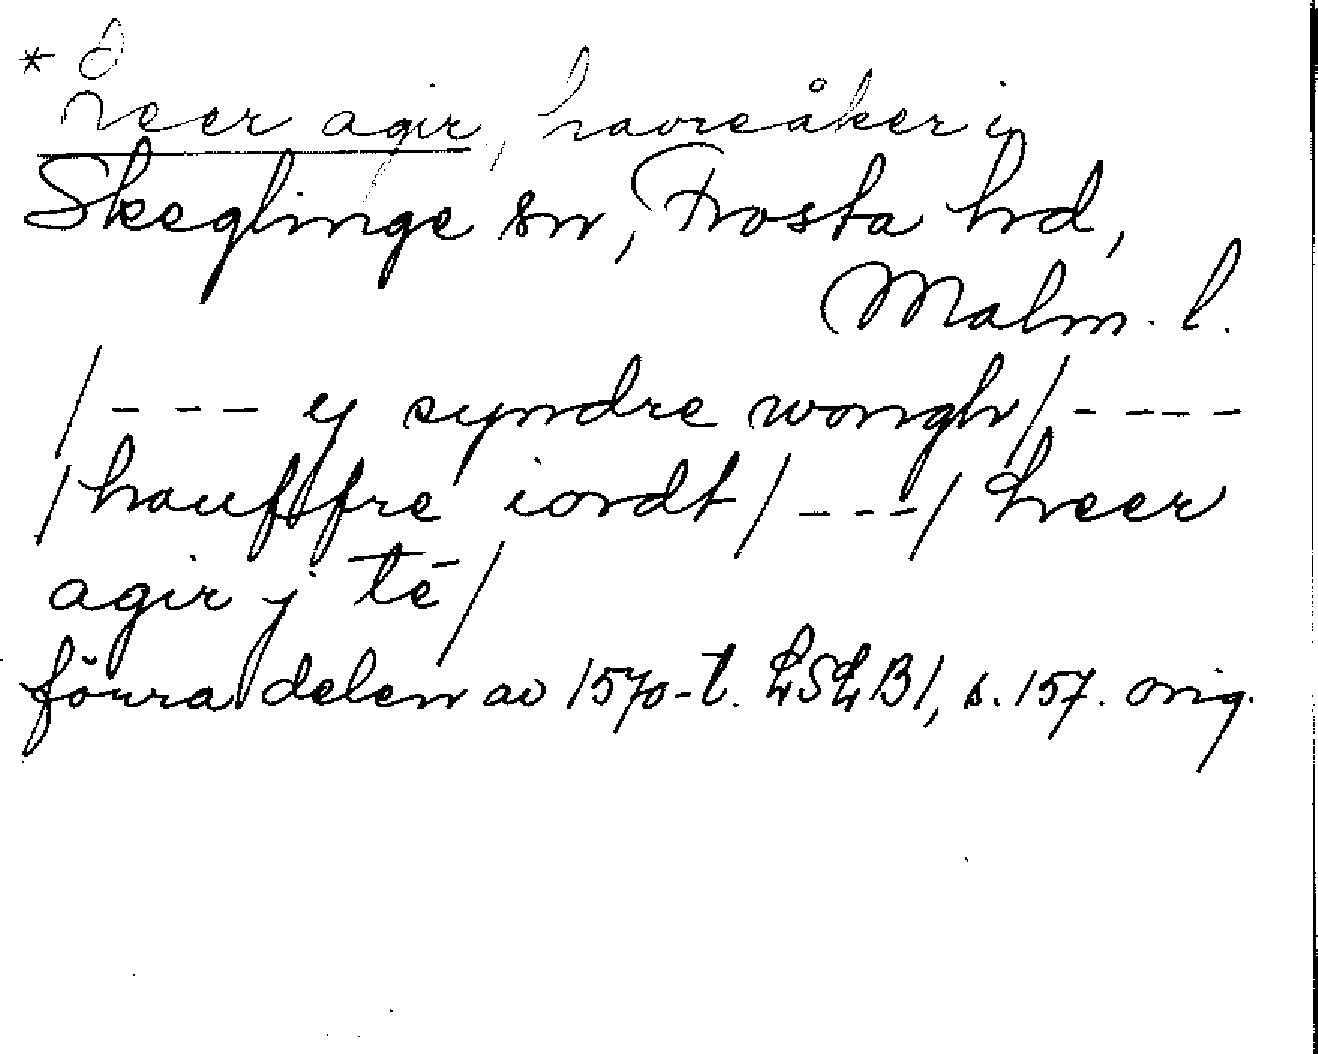 * heer agir, havreåker i
Skeglinge sn, Frosta hd,
Malm. l.
/--- ej syndre wongh/----
/hauffre iordt/---/heer
agir j té/
förra delen av 1570-t. LSLB1, s. 157. orig.